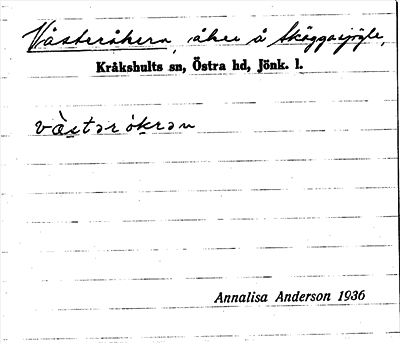 Västeråkern, åker å Skäggasjögle,
Kråkshults sn, Östra hd, Jönk. l.
vä̀stərókrən
Annalisa Anderson 1936